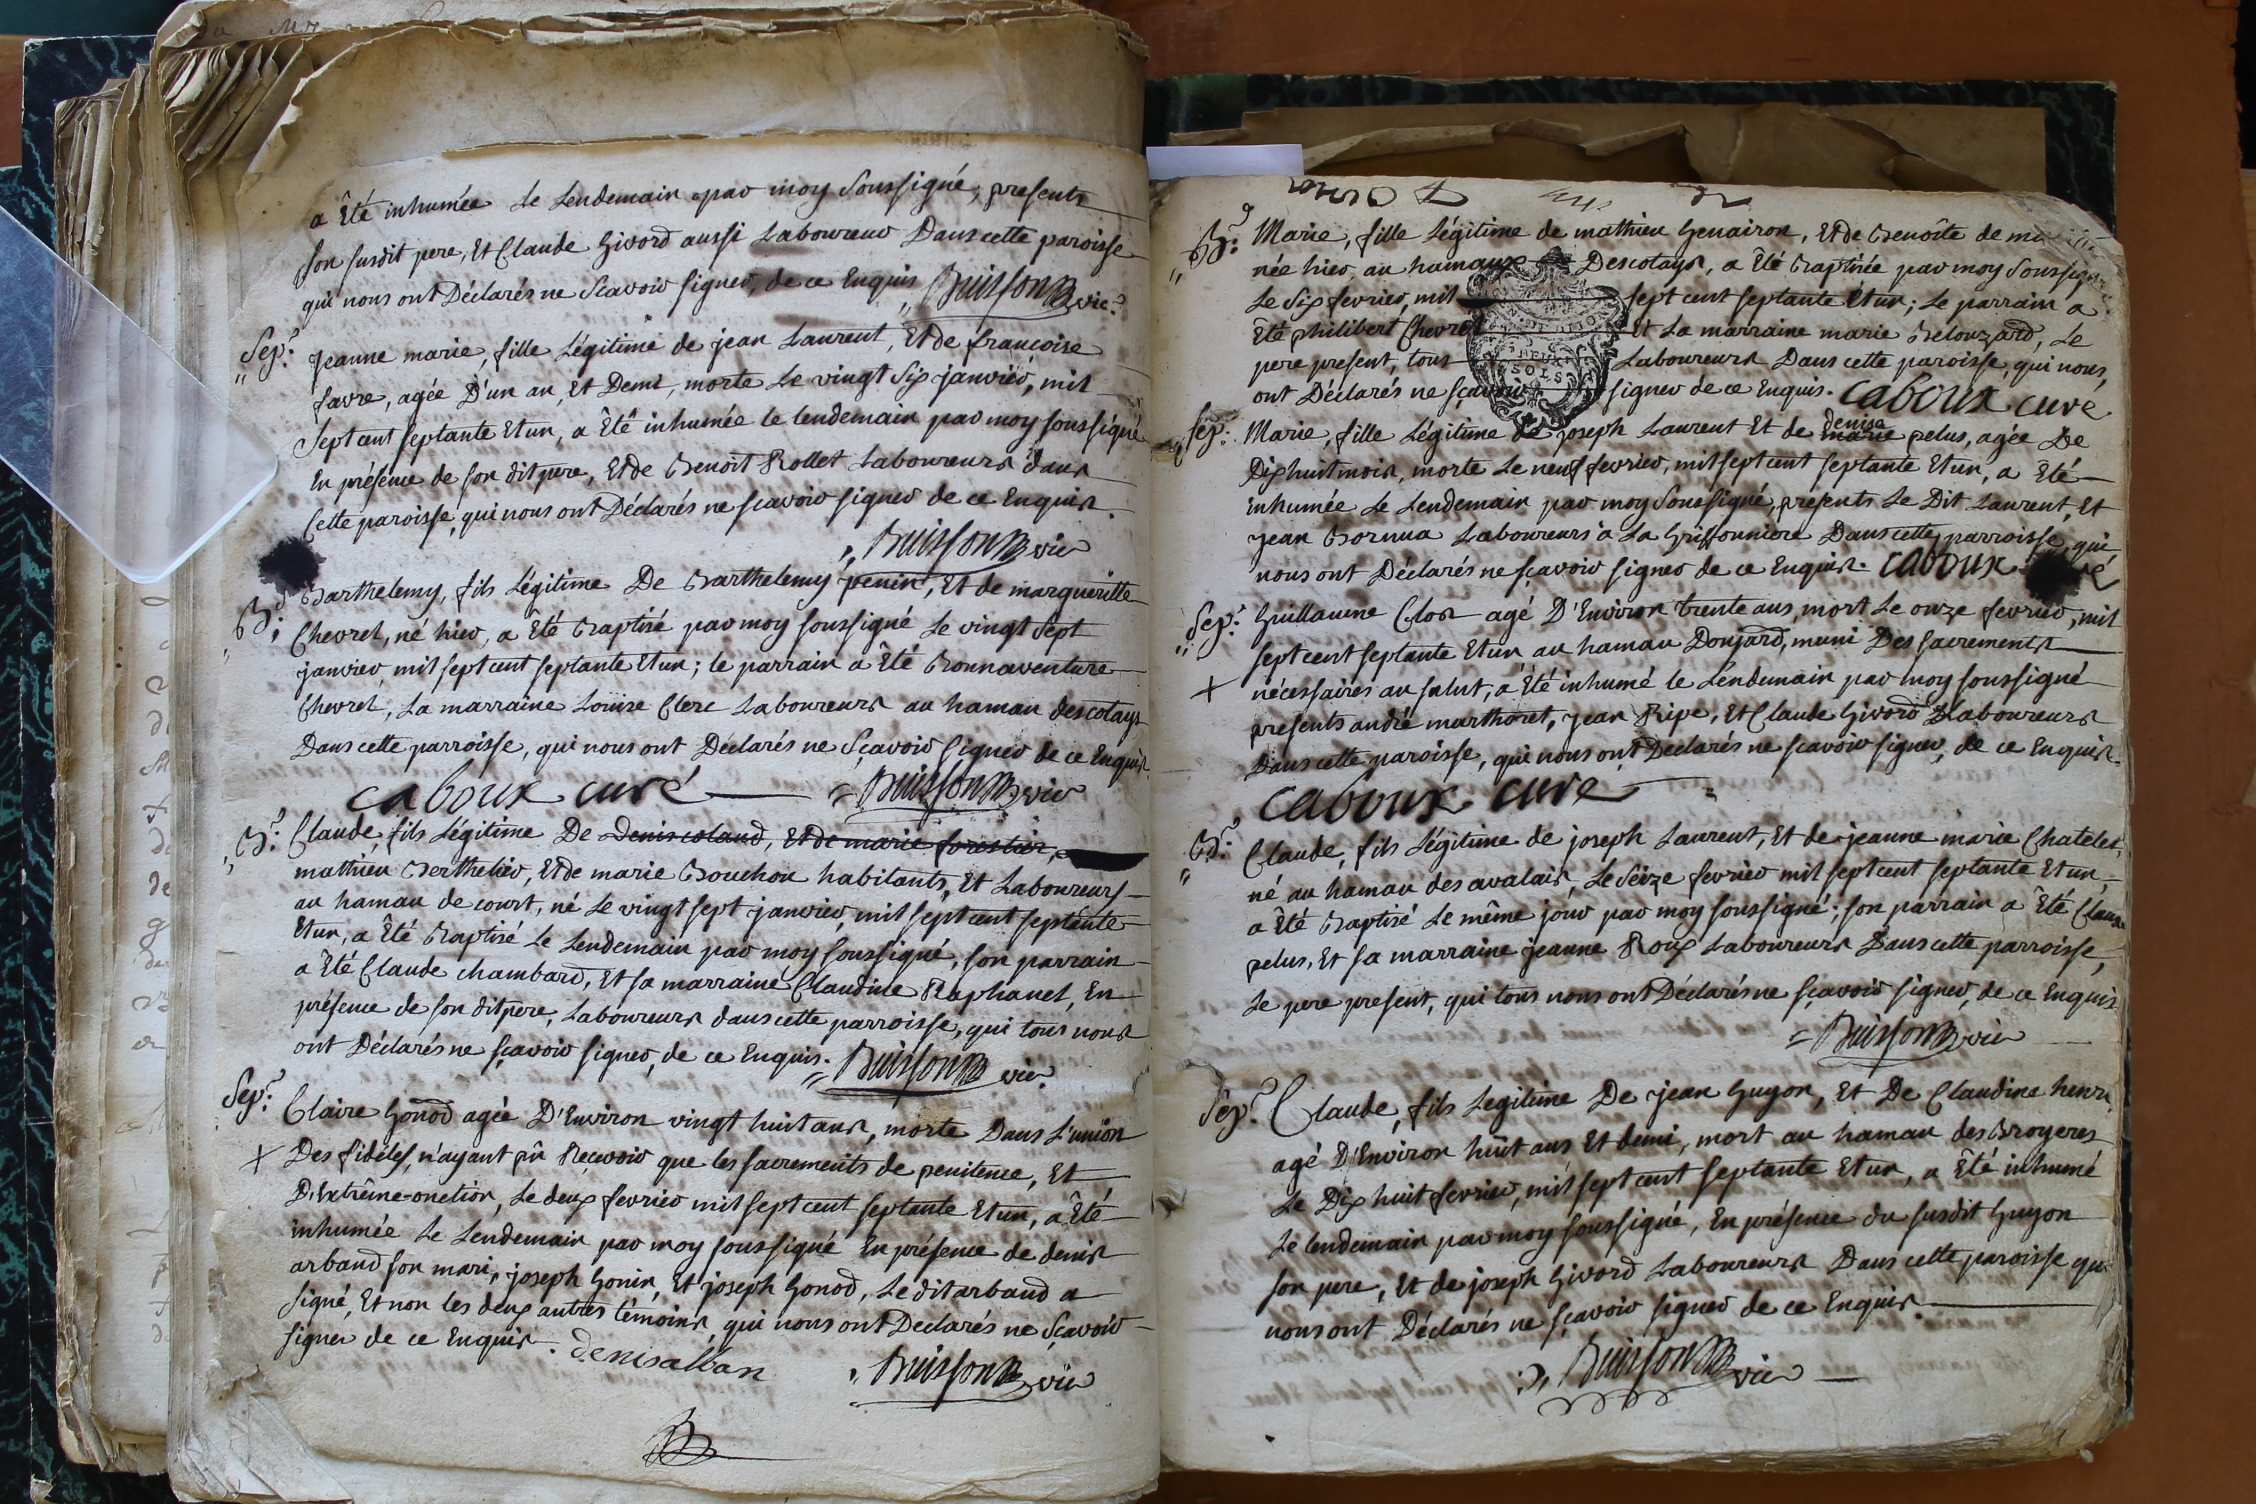 a Été inhumée Le Lendemain par moy Soussigné, presents
son susdit pere, Et Claude Givord aussi Laboureur Dans cette paroisse
qui nous ont Déclarés ne Scavoir signer, de ce Enquis Buisson vic.
Sep.r Jeanne marie, fille Légitime de jean Laurent, Et de francoise
favre, agée D'un an, Et Demi, morte Le vingt Six janvier, mil
Sept cent septante Et un, a Été inhumée le lendemain par moy soussigné
En présence de son dit pere, Et de Benoit Rollet Laboureurs dans
Cette paroisse, qui nous ont Déclarés ne scavoir signer de ce Enquis.
Buisson vic
B: Barthelemy, fils Légitime De Barthelemy penin, Et de margueritte
Chevret, né hier, a Été Baptisé par moy soussigné Le vingt Sept
janvier, mil sept cent septante Et un; le parrain a Été Bonnaventure
Chevret, La marraine Loüise Clerc Laboureurs au hamau descotays
Dans cette parroisse, qui nous ont Déclarés ne Sçavoir Signer de ce Enquis
caboux curé Buisson vic
B: Claude, fils Légitime De Denis coland, Et de marie forestier,
mathieu Berthelier, Et de marie Bouchou habitants, Et Laboureurs
au hamau de court, né Le vingt sept janvier, mil sept cent septante
Et un, a Été Baptisé Le Lendemain par moy soussigné, son parrain
a Été Claude chambard, Et sa marraine Claudine Raphanel, En
présence de son dit pere, Laboureurs dans cette parroisse, qui tous nous
ont Déclarés ne sçavoir signer, de ce Enquis. Buisson vic.
Sep.r Claire Gonod agée D'Environ vingt huit ans, morte Dans L'union
+ Des fidéles, n'ayant pû Recevoir que les sacrements de penitence, Et
D'Extrême-onction, Le deux fevrier mil sept cent septante Et un, a Été
inhumée Le Lendemain par moy soussigné En présence de denis
arband son mari, joseph Gonin, Et joseph Gonod, Le dit arband a
signé, Et non les deux autres témoins, qui nous ont Declarés ne Sçavoir
signer de ce Enquis. denis alban Buisson vic
B: Marie, fille Légitime de mathieu Genairon, Et de Benoîte de
née hier, au hamaux Descotays, a Été Baptisée par moy Soussigné
Le Six fevrier, mil sept cent septante Et un; Le parrain a
Été philibert Chevret Et La marraine marie Belouzard, Le
pere present, tous Laboureurs Dans cette paroisse, qui nous,
ont Déclarés ne sçavoir signer de ce Enquis. caboux curé
Sep.r Marie, fille Légitime de joseph Laurent Et de marie denise pelus, agée De
Dix huit mois, morte Le neuf fevrier, mil sept cent septante Et un, a Eté
inhumée Le Lendemain par moy Soussigné, presents Le Dit Laurent, Et
Jean Bornua Laboureurs à La Griffonniere Dans cette parroisse, qui
nous ont Déclarés ne sçavoir signer de ce Enquis. caboux
Sep.r Guillaume Clos agé D'Environ trente ans, mort Le onze fevrier, mil
sept cent septante Et un au hamau Donjard, muni Des sacrements
+ nécessaires au salut, a Été inhumé le Lendemain par moy soussigné
presents andré marthoret, Jean Ripe, Et Claude Givord Laboureurs
Dans cette paroisse, qui nous ont Declarés ne scavoir signer, de ce Enquis.
caboux curé
B: Claude, fils Légitime de joseph Laurent, Et de jeanne marie Chatelet,
né au hamau des avalais, Le Seize fevrier mil sept cent septante Et un,
a Été Baptisé Le même jour par moy soussigné; son parrain a Été Claude
pelus, Et sa marraine jeanne Roux Laboureurs Dans cette parroisse,
Le pere present, qui tous nous ont Déclarés ne sçavoir signer, de ce Enquis
Buisson vic
Sep.r Claude, fils Legitime De jean Guyon, Et De Claudine henri,
agé D'Environ huit ans Et demi, mort au hamau des Broyeres
Le Dix huit fevrier, mil sept cent septante Et un, a Été inhumé
Le lendemain par moy soussigné, En présence du susdit Guyon
son pere, Et de joseph Givord Laboureurs Dans cette paroisse qui
nous ont Déclarés ne sçavoir signer de ce Enquis
Buisson vic